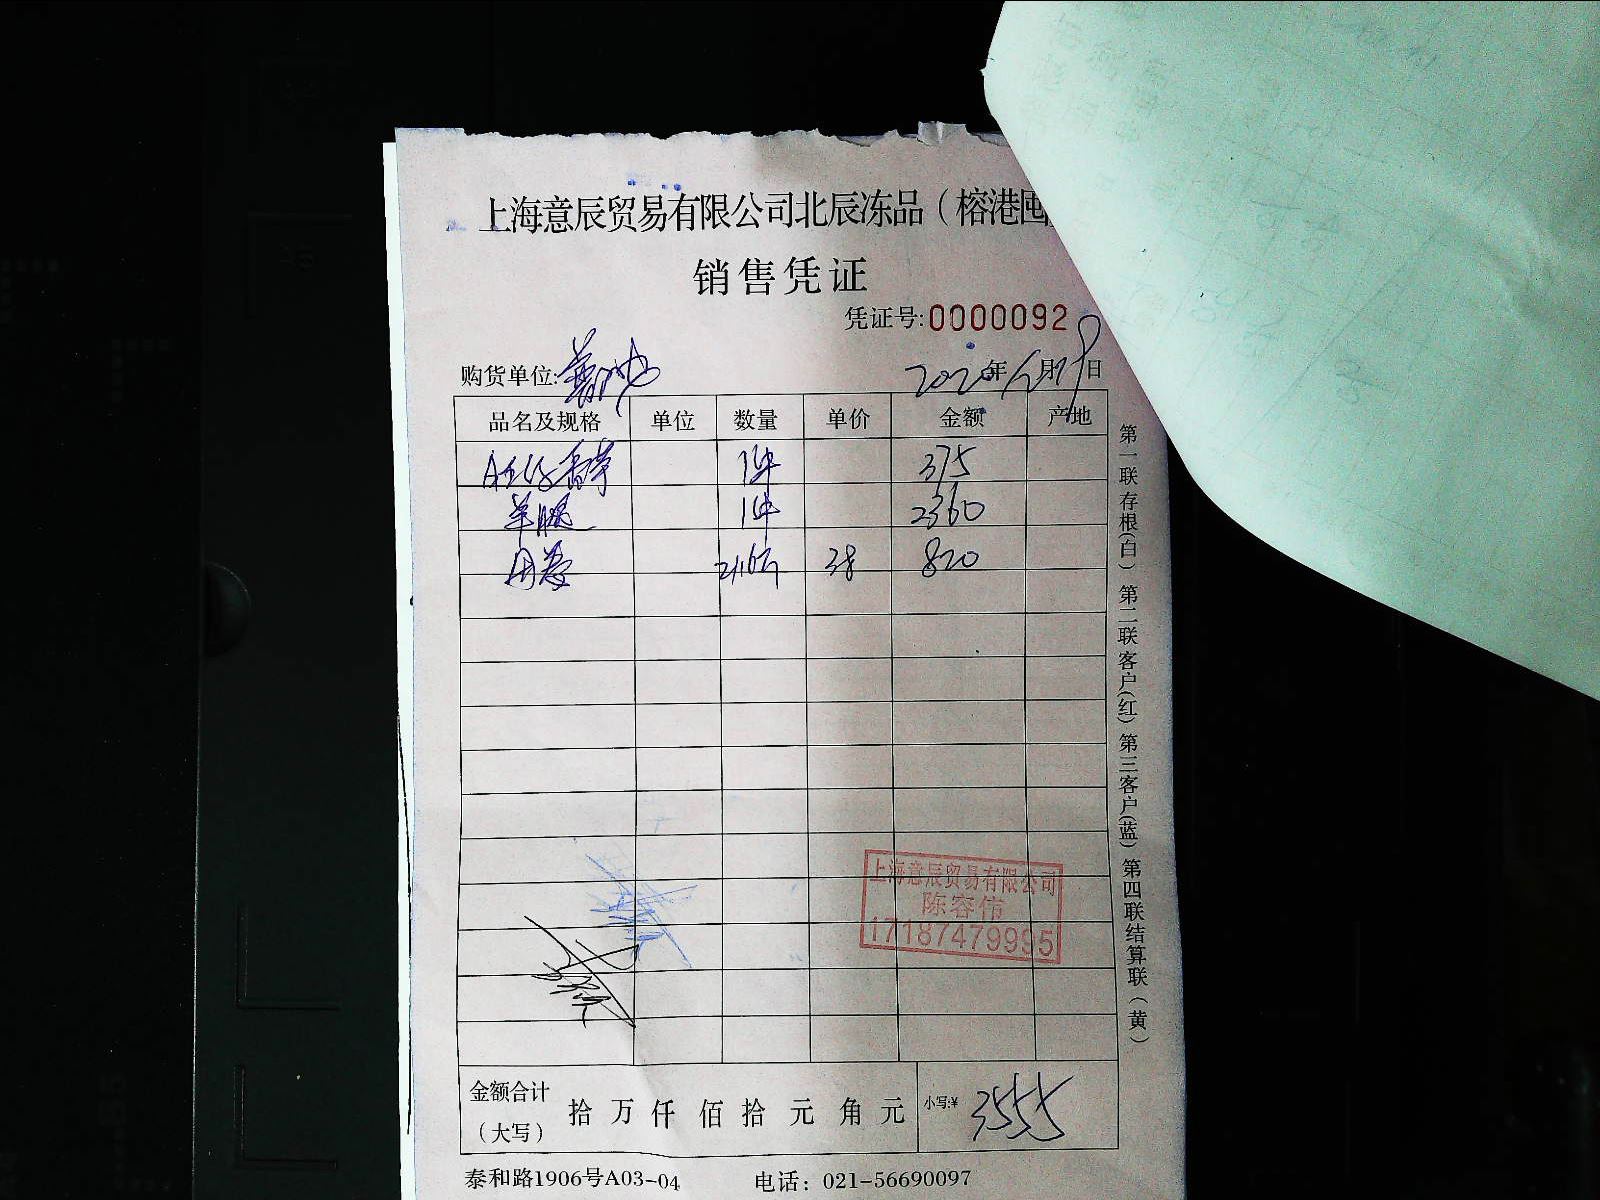 上海意辰贸易有限公司北辰冻品（榕港囤
销售凭证
凭证号:0000092
购货单位:
2020年6月19日
品名及规格 单位 数量 单价 金额 产地
1件 375
羊腿 1件 2360
21.6斤 38 820
上海意辰贸易有限公司
陈容伟
17187479995
金额合计（大写） 拾 万 仟 佰 拾 元 角 元 小写:¥ 3555
泰和路1906号A03-04 电话：021-56690097
第一联存根(白) 第二联客户(红) 第三客户(蓝) 第四联结算联（黄）